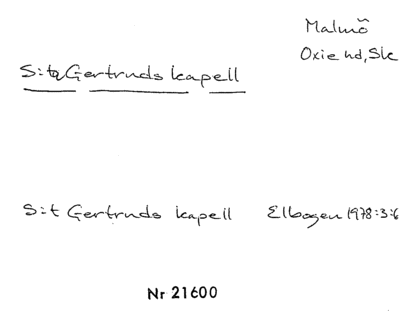 Malmö
Oxie hd, Sk
S:ta Gertruds kapell
S:t Gertruds kapell Elbogen 1978:3:6
Nr 21600